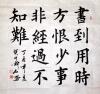 書到用時
方恨少事
非經過不
知難